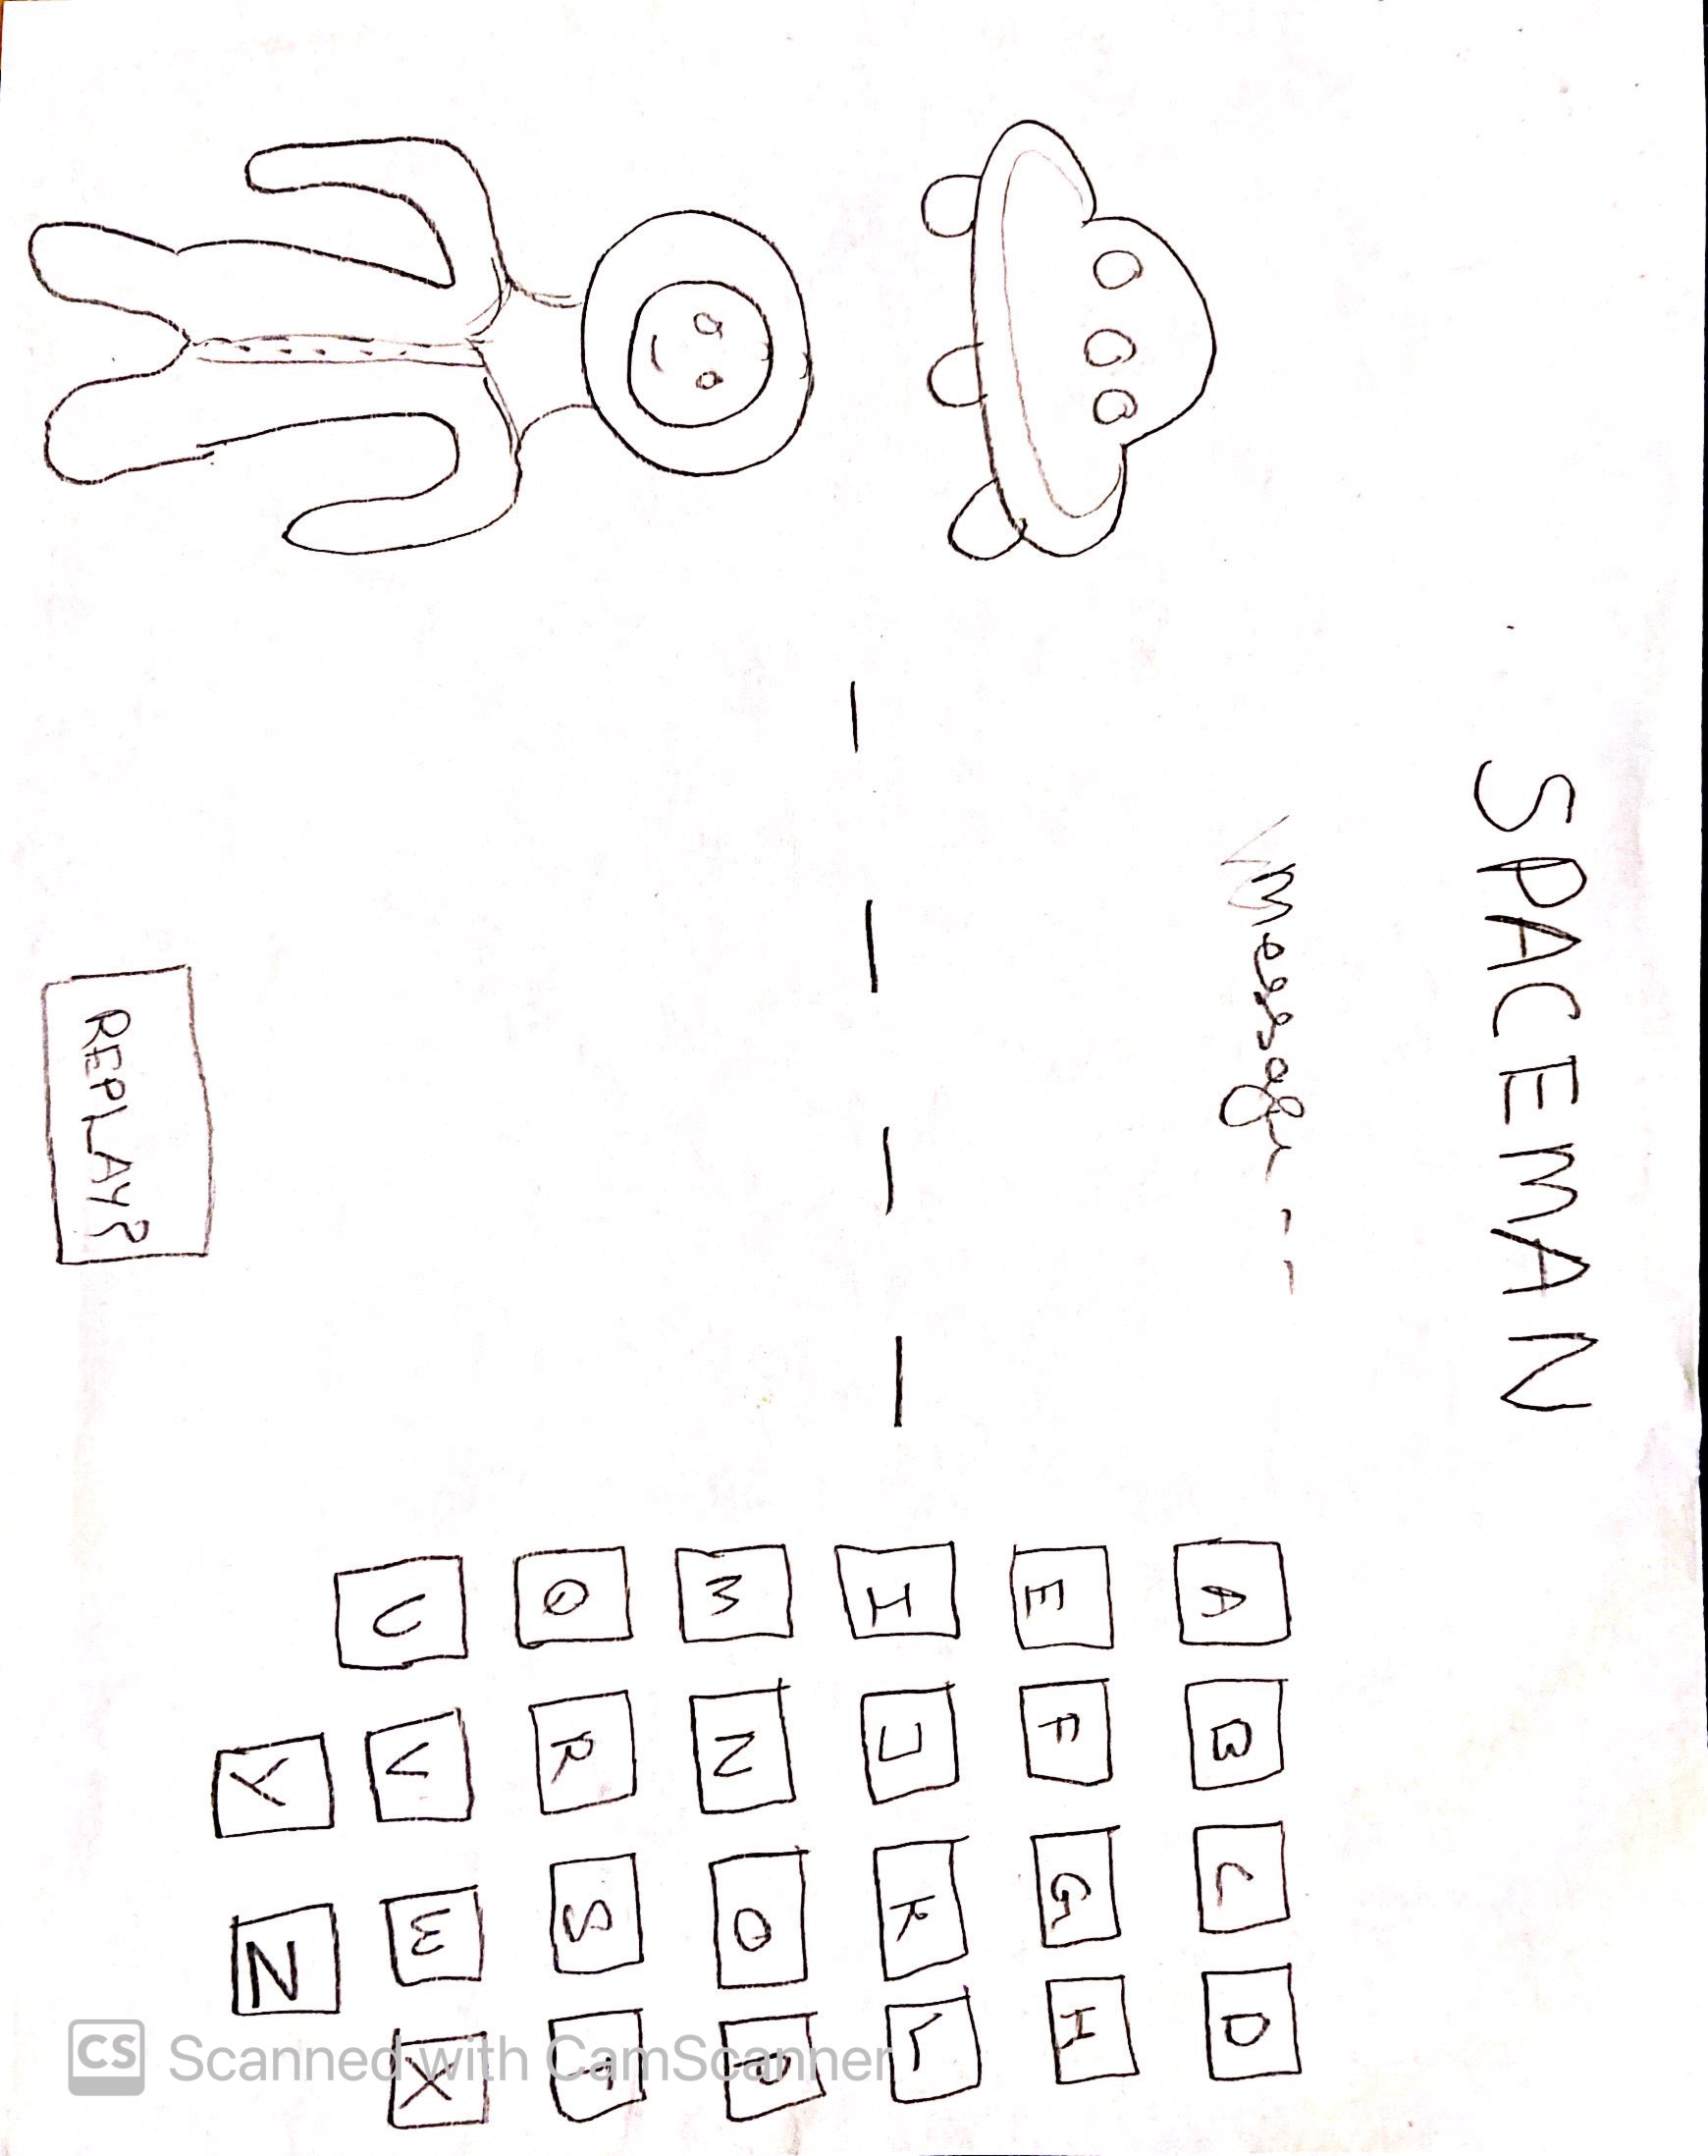 SPACEMAN
message --
A B C D
E F G H
I J K L
_ _ _ _
M N O P
Q R S T
U V W X
Y Z
REPLAY?
CS Scanned with CamScanner